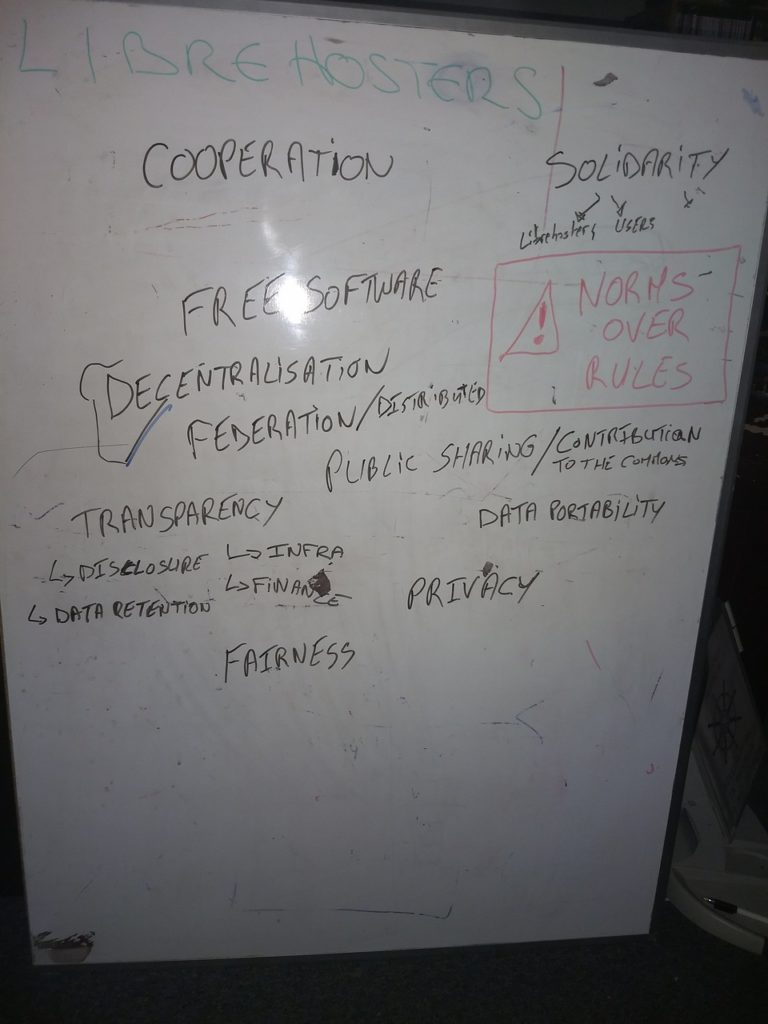 LIBREHOSTERS
COOPERATION
SOLIDARITY
Librehosters USERS
FREE SOFTWARE
! NORMS
OVER
RULES
DECENTRALISATION
FEDERATION/DISTRIBUTED
PUBLIC SHARING/CONTRIBUTION
TO THE COMMONS
TRANSPARENCY
DATA PORTABILITY
↳ DISCLOSURE
↳ INFRA
↳ DATA RETENTION
↳ FINANCE
PRIVACY
FAIRNESS